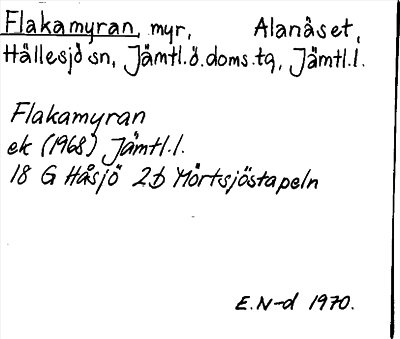 Flakamyran, myr, Alanäset,
Hällesjö sn, Jämtl.ö.doms.tg, Jämtl.l.
Flakamyran
ek (1968) Jämtl.l.
18 G Håsjö 2b Mörtsjöstapeln
E.N-d 1970.